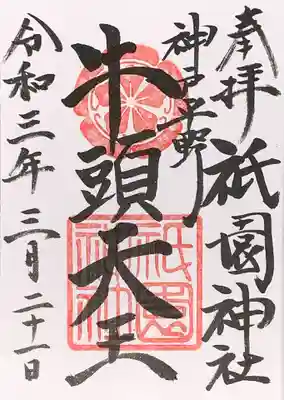 奉拝 祇園神社
神戸平野
牛頭天王
祇園神社
令和三年三月二十一日